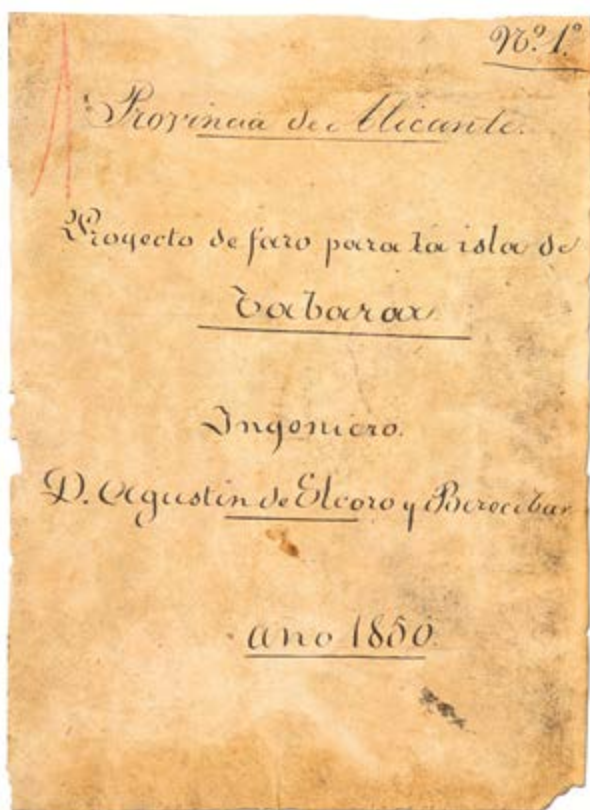 Nº. 1º
Provincia de Alicante.
Proyecto de faro para la isla de
Tabarca
Ingeniero.
D. Agustin de Elcoro y Berecibar
Año 1850.